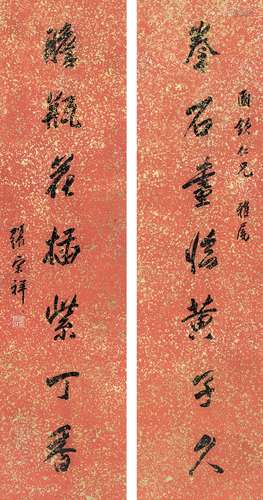 國欽仁兄雅屬
拳石畫臨黃子久
膽瓶花插紫丁香
張宗祥